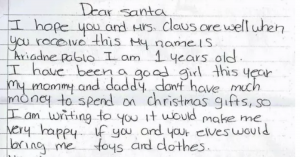 Dear Santa
I hope you and Mrs. Claus are well when
you receive this My name is
Ariadne Pablo I am 1 years old.
I have been a good girl this year
my mommy and daddy don't have much
money to spend on christmas gifts, so
I am writing to you it would make me
very happy if you and your elves would
bring me toys and clothes.